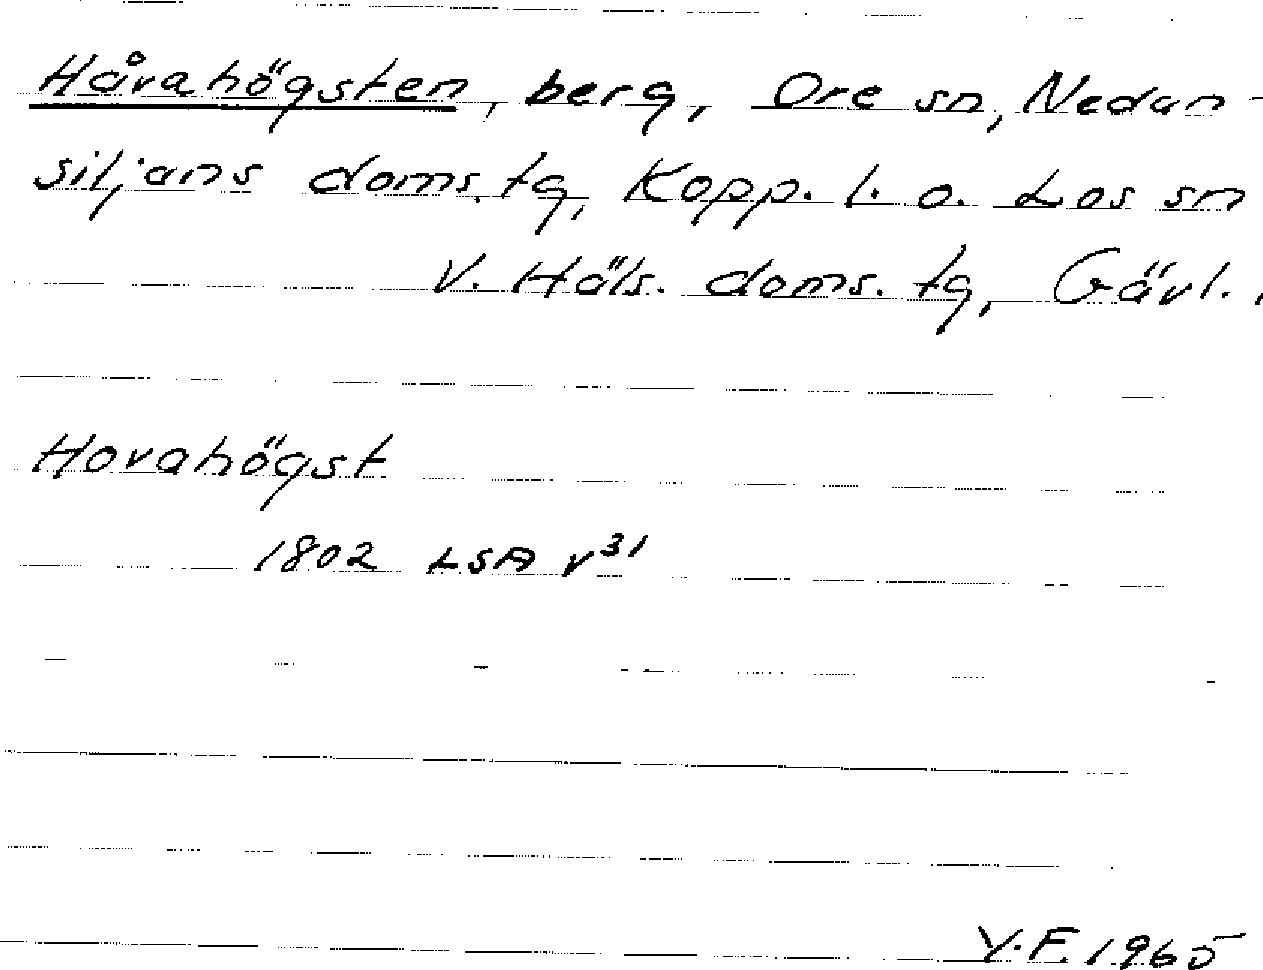 Håvahögsten, berg, Ore sn, Nedan-
siljans doms. tg, Kopp. l. o. Los sn
V. Häls. doms. tg, Gävl.
Hovahögst
1802 LSA v³¹
V.F. 1965